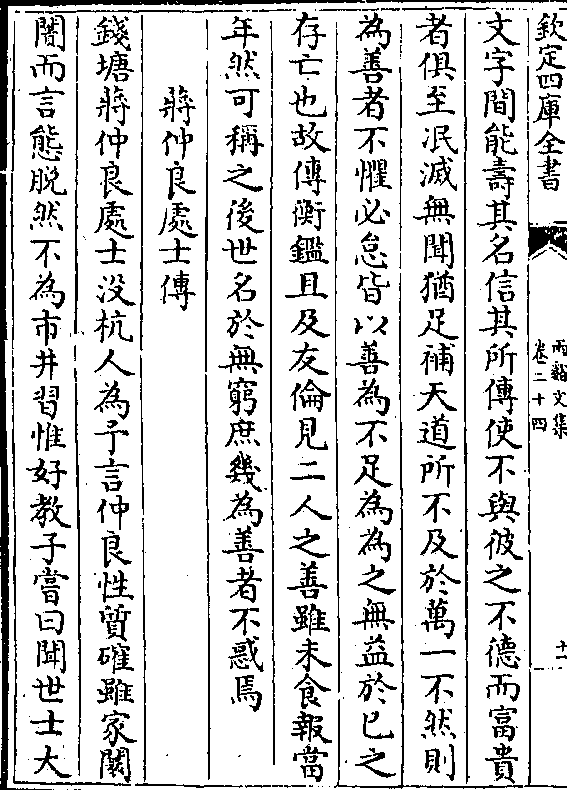 欽定四庫全書
兩谿文集
卷二十四
十一
文字間能壽其名信其所傳使不與彼之不德而富貴
者俱至泯滅無聞猶足補天道所不及於萬一不然則
為善者不懼必怠皆以善為不足為為之無益於已之
存亡也故傳衡鑑且及友倫見二人之善雖未食報當
年然可稱之後世名於無窮庶幾為善者不惑焉
蔣仲良處士傳
錢塘蔣仲良處士没杭人為予言仲良性質確雖家闤
闠而言態脱然不為市井習惟好教子嘗曰聞世士大